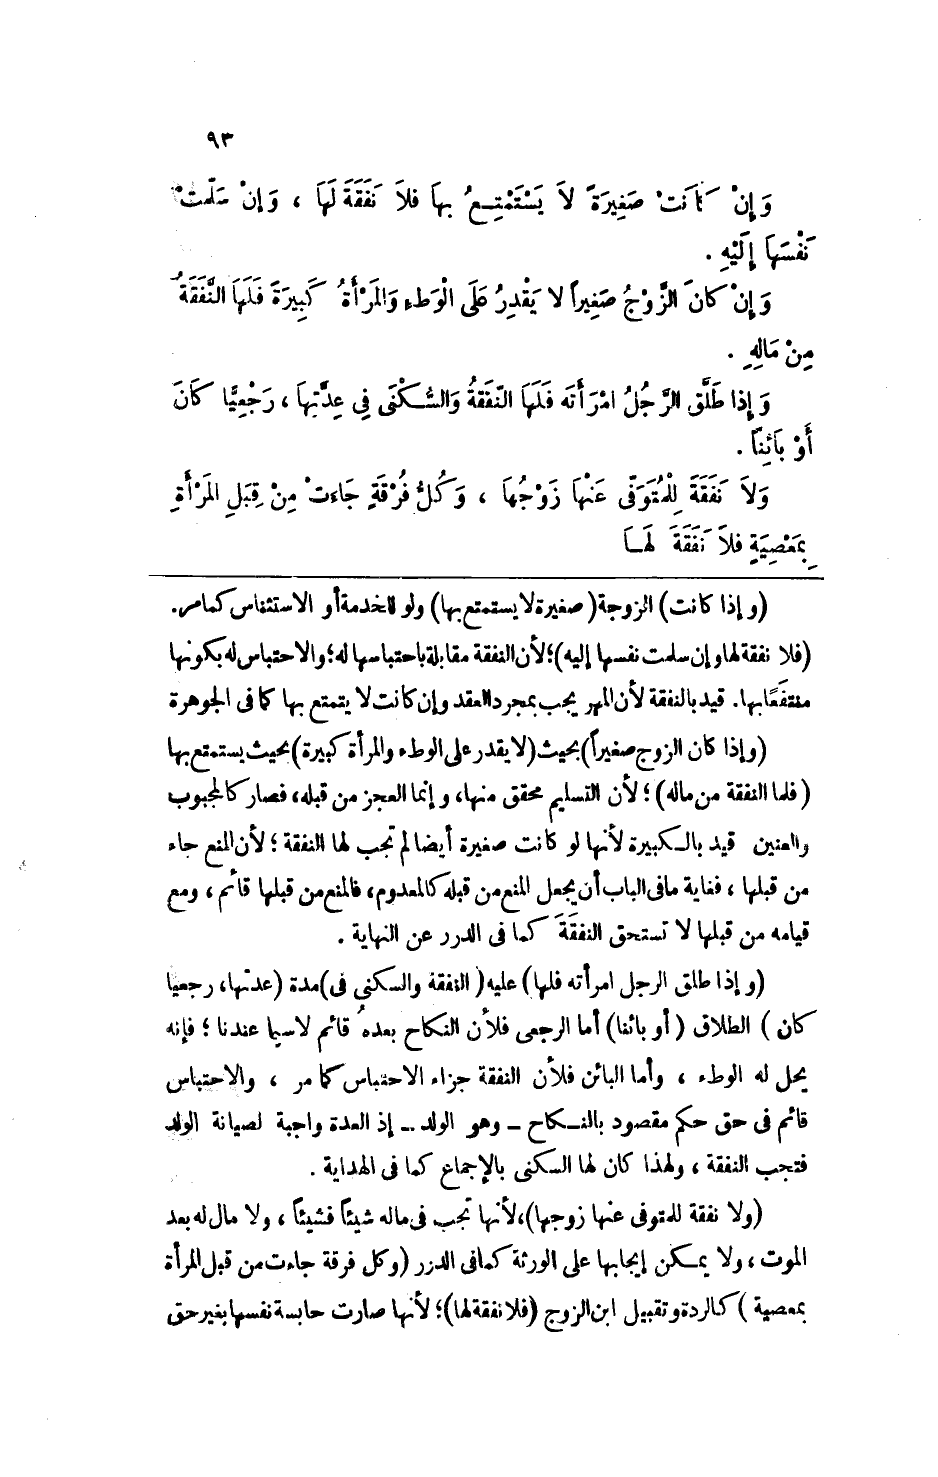 ٩٣
وَإِنْ كَانَتْ صَغِيرَةً لاَ يَسْتَمْتِعُ بِهَا فَلاَ نَفَقَةَ لَهَا ، وَإِنْ سَلَّمَتْ
نَفْسَهَا إِلَيْهِ .
وَإِنْ كَانَ الزَّوْجُ صَغِيراً لا يَقْدِرُ عَلَى الْوَطءِ وَالمَرْأَةُ كَبِيرَةً فَلَهَا النَّفَقَةُ
مِنْ مَالِهِ .
وَإِذا طَلَّقَ الرَّجُلُ امْرَأَتَه فَلَهَا النَّفَقَةُ وَالسُّكْنَى فِي عِدَّتِهَا ، رَجْعِيًّا كَانَ
أَوْ بَائِناً .
وَلاَ نَفَقَةَ لِلْمُتَوَفَّى عَنْهَا زَوْجُهَا ، وَكُلُّ فُرْقَةٍ جَاءَتْ مِنْ قِبَلِ المَرْأَةِ
بِمَعْصِيَةٍ فَلاَ نَفَقَةَ لَهَا
(وإذا كانت) الزوجة (صغيرة لا يستمتع بها) ولو للخدمة أو الاستئناس كما مر.
(فلا نفقة لها وإن سلمت نفسها إليه)؛ لأن النفقة مقابلة باحتباسها له؛ والاحتباس له بكونها
منتفَعًا بها. قيد بالنفقة لأن المهر يجب بمجرد العقد وإن كانت لا يتمتع بها كما فى الجوهرة
(وإذا كان الزوج صغيراً) بحيث (لا يقدر على الوطء والمرأة كبيرة) بحيث يستمتع بها
(فلها النفقة من ماله)؛ لأن التسليم محقق منها، وإنما العجز من قبله، فصار كالمجبوب
والعنين قيد بالكبيرة لأنها لو كانت صغيرة أيضا لم تجب لها النفقة؛ لأن المنع جاء
من قبلها، فغاية مافى الباب أن يجعل المنع من قبله كالمعدوم، فالمنع من قبلها قائم، ومع
قيامه من قبلها لا تستحق النفقةَ كما فى الدرر عن النهاية .
(وإذا طلق الرجل امرأته فلها) عليه (النفقة والسكنى فى) مدة (عدتها، رجعيا
كان) الطلاق (أو بائنا) أما الرجعى فلأن النكاح بعده قائم لاسيما عندنا؛ فإنه
يحل له الوطء، وأما البائن فلأن النفقة جزاء الاحتباس كما مر، والاحتباس
قائم فى حق حكم مقصود بالنكاح - وهو الولد - إذ العدة واجبة لصيانة الولد
فتجب النفقة، ولهذا كان لها السكنى بالإجماع كما فى الهداية .
(ولا نفقة للمتوفى عنها زوجها)، لأنها تجب فى ماله شيئاً فشيئاً، ولا مال له بعد
الموت، ولا يمكن إيجابها على الورثة كما فى الدرر (وكل فرقة جاءت من قبل المرأة
بمعصية) كالردة وتقبيل ابن الزوج (فلا نفقة لها)؛ لأنها صارت حابسة نفسها بغير حق